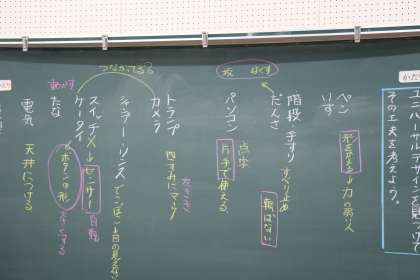 ユニバーサルデザインを見つけて
その工夫を考えよう。
ペン
いす
形を変える→力の弱い人
広く なくす
だんさ
階段 手すり すべり止め
転ばない
パソコン 点字
片手で使える
トランプ 四すみにマーク 左きき
カメラ
シャンプー・リンス でこぼこ→目の見えない
つながってる?
スイッチ×→センサー 自動
ケータイ→ボタンの形 大きくする
たな
動かす
電気 天井につける